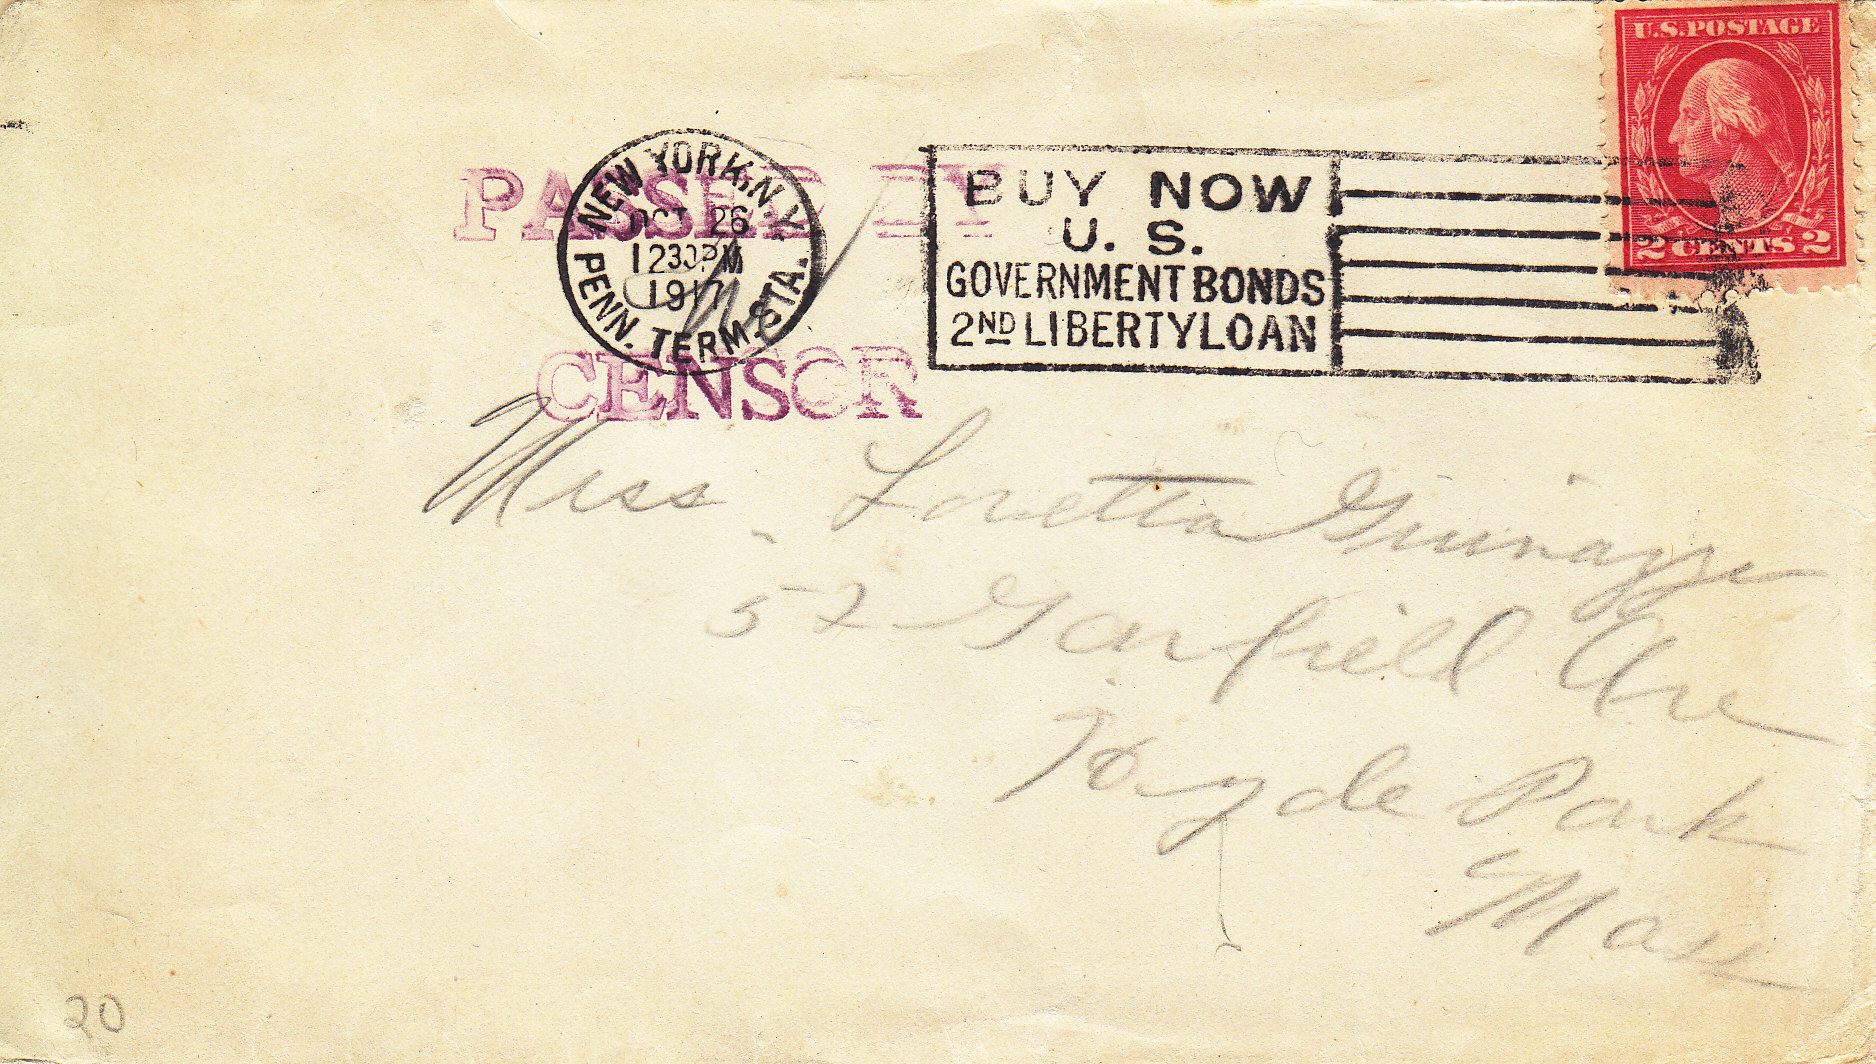 U.S. POSTAGE
2 CENTS 2
PASSED BY
CENSOR
NEW YORK, N.Y.
OCT 26
1230PM
1917
PENN. TERM. STA.
BUY NOW
U. S.
GOVERNMENT BONDS
2ND LIBERTY LOAN
Miss Loretta
57 Garfield Ave
Hyde Park
Mass
20